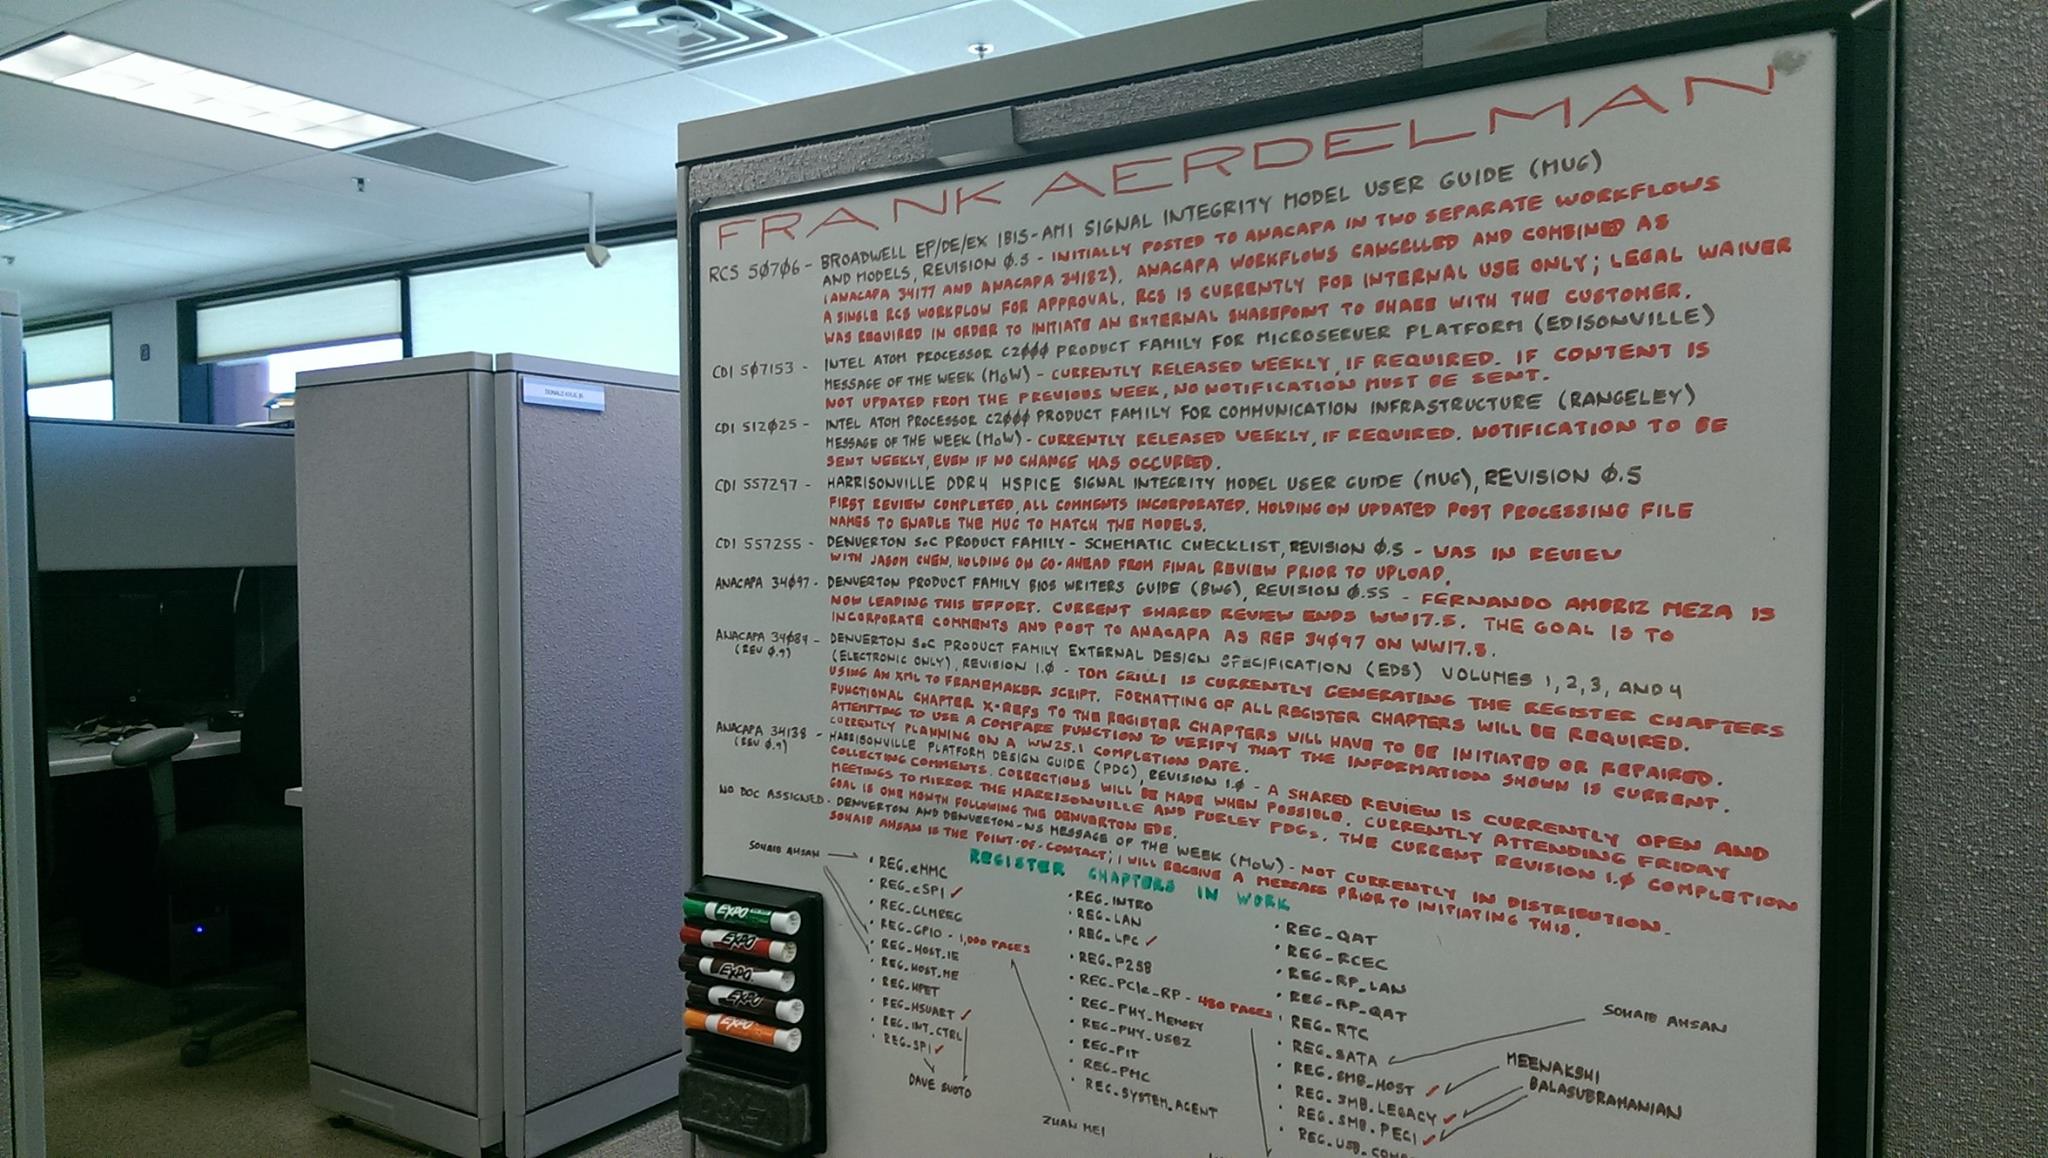 FRANK AERDELMAN
RCS 50706 - BROADWELL EP/DE/EX IBIS-AMI SIGNAL INTEGRITY MODEL USER GUIDE (MUG)
AND MODELS, REVISION 0.5 - INITIALLY POSTED TO ANACAPA IN TWO SEPARATE WORKFLOWS
(ANACAPA 34177 AND ANACAPA 34182). ANACAPA WORKFLOWS CANCELLED AND COMBINED AS
A SINGLE RCS WORKFLOW FOR APPROVAL. RCS IS CURRENTLY FOR INTERNAL USE ONLY; LEGAL WAIVER
WAS REQUIRED IN ORDER TO INITIATE AN EXTERNAL SHAREPOINT TO SHARE WITH THE CUSTOMER.
CDI 507153 - INTEL ATOM PROCESSOR C2000 PRODUCT FAMILY FOR MICROSERVER PLATFORM (EDISONVILLE)
MESSAGE OF THE WEEK (MoW) - CURRENTLY RELEASED WEEKLY, IF REQUIRED. IF CONTENT IS
NOT UPDATED FROM THE PREVIOUS WEEK, NO NOTIFICATION MUST BE SENT.
CDI 512025 - INTEL ATOM PROCESSOR C2000 PRODUCT FAMILY FOR COMMUNICATION INFRASTRUCTURE (RANGELEY)
MESSAGE OF THE WEEK (MoW) - CURRENTLY RELEASED WEEKLY, IF REQUIRED. NOTIFICATION TO BE
SENT WEEKLY, EVEN IF NO CHANGE HAS OCCURRED.
CDI 557297 - HARRISONVILLE DDR4 HSPICE SIGNAL INTEGRITY MODEL USER GUIDE (MUG), REVISION 0.5
FIRST REVIEW COMPLETED, ALL COMMENTS INCORPORATED. HOLDING ON UPDATED POST PROCESSING FILE
NAMES TO ENABLE THE MUG TO MATCH THE MODELS.
CDI 557255 - DENVERTON SoC PRODUCT FAMILY - SCHEMATIC CHECKLIST, REVISION 0.5 - WAS IN REVIEW
WITH JASON CHEN, HOLDING ON GO-AHEAD FROM FINAL REVIEW PRIOR TO UPLOAD.
ANACAPA 34097 - DENVERTON PRODUCT FAMILY BIOS WRITERS GUIDE (BWG), REVISION 0.55 - FERNANDO AMBRIZ MEZA IS
NOW LEADING THIS EFFORT. CURRENT SHARED REVIEW ENDS WW17.5. THE GOAL IS TO
INCORPORATE COMMENTS AND POST TO ANACAPA AS REF 34097 ON WW17.5.
ANACAPA 34084 - DENVERTON SoC PRODUCT FAMILY EXTERNAL DESIGN SPECIFICATION (EDS) VOLUMES 1, 2, 3, AND 4
(REV 0.9) (ELECTRONIC ONLY), REVISION 1.0 - TOM GRILLI IS CURRENTLY GENERATING THE REGISTER CHAPTERS
USING AN XML TO FRAMEMAKER SCRIPT. FORMATTING OF ALL REGISTER CHAPTERS WILL BE REQUIRED.
FUNCTIONAL CHAPTER X-REFS TO THE REGISTER CHAPTERS WILL HAVE TO BE INITIATED OR REPAIRED.
ATTEMPTING TO USE A COMPARE FUNCTION TO VERIFY THAT THE INFORMATION SHOWN IS CURRENT.
CURRENTLY PLANNING ON A WW25.1 COMPLETION DATE.
ANACAPA 34138 - HARRISONVILLE PLATFORM DESIGN GUIDE (PDG), REVISION 1.0 - A SHARED REVIEW IS CURRENTLY OPEN AND
(REV 0.9) COLLECTING COMMENTS. CORRECTIONS WILL BE MADE WHEN POSSIBLE. CURRENTLY ATTENDING FRIDAY
MEETINGS TO MIRROR THE HARRISONVILLE AND PURLEY PDGs. THE CURRENT REVISION 1.0 COMPLETION
GOAL IS ONE MONTH FOLLOWING THE DENVERTON EDS.
NO DOC ASSIGNED - DENVERTON AND DENVERTON-NS MESSAGE OF THE WEEK (MoW) - NOT CURRENTLY IN DISTRIBUTION.
SOHAIB AHSAN IS THE POINT-OF-CONTACT; I WILL RECEIVE A MESSAGE PRIOR TO INITIATING THIS.
REGISTER CHAPTERS IN WORK
SOHAIB AHSAN
• REG_eMMC
• REG_eSPI ✓
• REG_CLMREG
• REG_GPIO - 1,000 PAGES
• REG_HOST.IE
• REG_HOST.ME
• REG_HPET
• REG_HSUART ✓
• REG_INT_CTRL
• REG_SPI ✓
DAVE SUOTO
• REG_INTRO
• REG_LAN
• REG_LPC ✓
• REG_P2SB
• REG_PCIe_RP - 480 PAGES
• REG_PHY_MEMORY
• REG_PHY_USB2
• REG_PIT
• REG_PMC
• REG_SYSTEM_AGENT
ZUAN MEI
• REG_QAT
• REG_RCEC
• REG_RP_LAN
• REG_RP_QAT
• REG_RTC
• REG_SATA
• REG_SMB_HOST ✓
• REG_SMB_LEGACY ✓
• REG_SMB_PECI ✓
SOHAIB AHSAN
MEENAKSHI
BALASUBRAMANIAN
EXPO
EXPO
EXPO
EXPO
EXPO